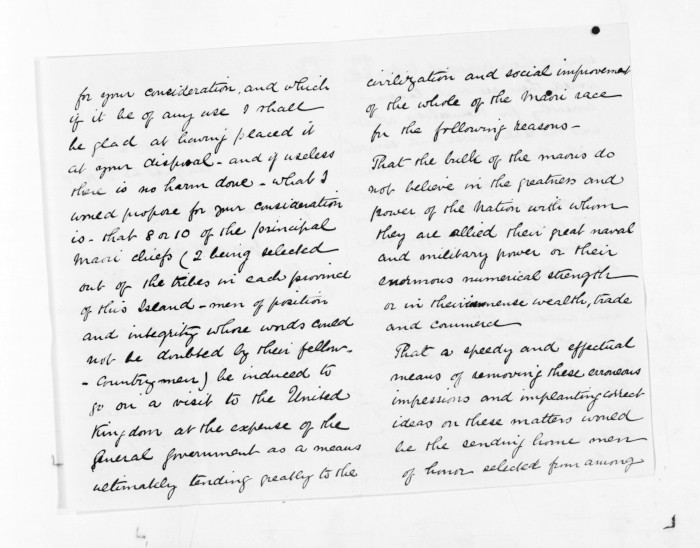 for your consideration, and which
if it be of any use I shall
be glad at having placed it
at your disposal - and if useless
there is no harm done - what I
would propose for your consideration
is - that 8 or 10 of the principal
Maori chiefs (2 being selected
out of the tribes in each province
of this Island - men of position
and integrity whose words could
not be doubted by their fellow-
- Countrymen) be induced to
go on a visit to the United
Kingdom at the expense of the
General government as a means
ultimately tending greatly to the
civilization and social improvement
of the whole of the Maori race
for the following reasons -
That the bulk of the maoris do
not believe in the greatness and
power of the Nation with whom
they are allied their great naval
and military power or their
enormous numerical strength
or in their immense wealth, trade
and commerce
That a speedy and effectual
means of removing these erroneous
impressions and implanting correct
ideas on these matters would
be the sending home men
of honor selected from among